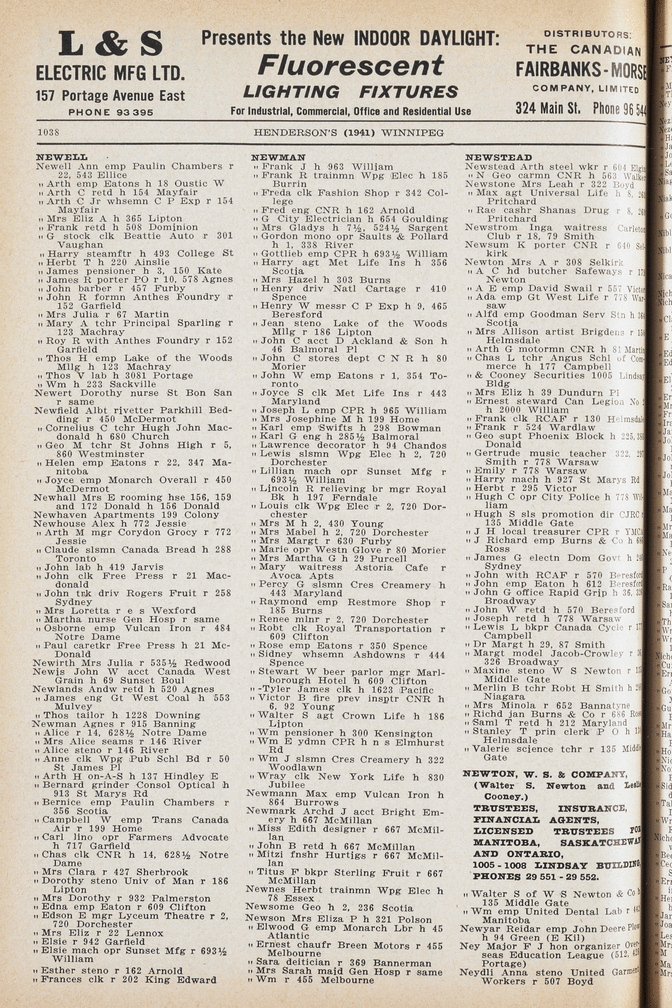 L & S
ELECTRIC MFG LTD.
157 Portage Avenue East
PHONE 93 395
Presents the New INDOOR DAYLIGHT:
Fluorescent
LIGHTING FIXTURES
For Industrial, Commercial, Office and Residential Use
DISTRIBUTORS:
THE CANADIAN
FAIRBANKS-MORSE
COMPANY, LIMITED
324 Main St. Phone 96 544
1038
HENDERSON'S (1941) WINNIPEG
NEWELL
Newell Ann emp Paulin Chambers r
22, 543 Ellice
" Arth emp Eatons h 18 Oustic W
" Arth C retd h 154 Mayfair
" Arth C Jr whsemn C P Exp r 154
Mayfair
" Mrs Eliz A h 365 Lipton
" Frank retd h 508 Dominion
" G stock clk Beattie Auto r 301
Vaughan
" Harry steamftr h 493 College St
" Herbt T h 220 Ainslie
" James pensioner h 3, 150 Kate
" James R porter PO r 10, 578 Agnes
" John barber r 457 Furby
" John R formn Anthes Foundry r
152 Garfield
" Mrs Julia r 67 Martin
" Mary A tchr Principal Sparling r
123 Machray
" Roy R with Anthes Foundry r 152
Garfield
" Thos H emp Lake of the Woods
Mllg h 123 Machray
" Thos V lab h 3081 Portage
" Wm h 233 Sackville
Newert Dorothy nurse St Bon San
r same
Newfield Albt rivetter Parkhill Bed-
ding r 450 McDermot
" Cornelius C tchr Hugh John Mac-
donald h 680 Church
" Geo M tchr St Johns High r 5,
860 Westminster
" Helen emp Eatons r 22, 347 Ma-
nitoba
" Joyce emp Monarch Overall r 450
McDermot
Newhall Mrs E rooming hse 156, 159
and 172 Donald h 156 Donald
Newhaven Apartments 199 Colony
Newhouse Alex h 772 Jessie
" Arth M mgr Corydon Grocy r 772
Jessie
" Claude slsmn Canada Bread h 288
Toronto
" John lab h 419 Jarvis
" John clk Free Press r 21 Mac-
donald
" John trk driv Rogers Fruit r 258
Sydney
" Mrs Loretta r e s Wexford
" Martha nurse Gen Hosp r same
" Osborne emp Vulcan Iron r 484
Notre Dame
" Paul caretkr Free Press h 21 Mc-
Donald
Newirth Mrs Julia r 535½ Redwood
Newis John W acct Canada West
Grain h 69 Sunset Boul
Newlands Andw retd h 520 Agnes
" James eng Gt West Coal h 553
Mulvey
" Thos tailor h 1228 Downing
Newman Agnes r 915 Banning
" Alice r 14, 628½ Notre Dame
" Mrs Alice seams r 146 River
" Alice steno r 146 River
" Anne clk Wpg Pub Schl Bd r 50
St James Pl
" Arth H on-A-S h 137 Hindley E
" Bernard grinder Consol Optical h
913 St Marys Rd
" Bernice emp Paulin Chambers r
356 Scotia
" Campbell W emp Trans Canada
Air r 199 Home
" Carl lino opr Farmers Advocate
h 717 Garfield
" Chas clk CNR h 14, 628½ Notre
Dame
" Mrs Clara r 427 Sherbrook
" Dorothy steno Univ of Man r 186
Lipton
" Mrs Dorothy r 932 Palmerston
" Edna emp Eaton r 609 Clifton
" Edson E mgr Lyceum Theatre r 2,
720 Dorchester
" Mrs Eliz r 22 Lennox
" Elsie r 942 Garfield
" Elsie mach opr Sunset Mfg r 693½
William
" Esther steno r 162 Arnold
" Frances clk r 202 King Edward
NEWMAN
" Frank J h 963 William
" Frank R trainmn Wpg Elec h 185
Burrin
" Freda clk Fashion Shop r 342 Col-
lege
" Fred eng CNR h 162 Arnold
" G City Electrician h 654 Goulding
" Mrs Gladys h 7½, 524½ Sargent
" Gordon mono opr Saults & Pollard
h 1, 338 River
" Gottlieb emp CPR h 693½ William
" Harry agt Met Life Ins h 356
Scotia
" Mrs Hazel h 303 Burns
" Henry driv Natl Cartage r 410
Spence
" Henry W messr C P Exp h 9, 465
Beresford
" Jean steno Lake of the Woods
Mllg r 186 Lipton
" John C acct D Ackland & Son h
46 Balmoral Pl
" John C stores dept C N R h 80
Morier
" John W emp Eatons r 1, 354 To-
ronto
" Joyce S clk Met Life Ins r 443
Maryland
" Joseph L emp CPR h 965 William
" Mrs Josephine M h 199 Home
" Karl emp Swifts h 298 Bowman
" Karl G eng h 285½ Balmoral
" Lawrence decorator h 94 Chandos
" Lewis slsmn Wpg Elec h 2, 720
Dorchester
" Lillian mach opr Sunset Mfg r
693½ William
" Lincoln R relieving br mgr Royal
Bk h 197 Ferndale
" Louis clk Wpg Elec r 2, 720 Dor-
chester
" Mrs M h 2, 430 Young
" Mrs Mabel h 2, 720 Dorchester
" Mrs Margt r 630 Furby
" Marie opr Westn Glove r 80 Morier
" Mrs Martha G h 29 Purcell
" Mary waitress Astoria Cafe r
Avoca Apts
" Percy G slsmn Cres Creamery h
443 Maryland
" Raymond emp Restmore Shop r
185 Burns
" Renee mlnr r 2, 720 Dorchester
" Robt clk Royal Transportation r
609 Clifton
" Rose emp Eatons r 350 Spence
" Sidney whsemn Ashdowns r 444
Spence
" Stewart W beer parlor mgr Marl-
borough Hotel h 609 Clifton
" -Tyler James clk h 1623 Pacific
" Victor B fire prev insptr CNR h
6, 92 Young
" Walter S agt Crown Life h 186
Lipton
" Wm pensioner h 300 Kensington
" Wm E ydmn CPR h n s Elmhurst
Rd
" Wm J slsmn Cres Creamery h 322
Woodlawn
" Wray clk New York Life h 830
Jubilee
Newmann Max emp Vulcan Iron h
864 Burrows
Newmark Archd J acct Bright Em-
ery h 667 McMillan
" Miss Edith designer r 667 McMil-
lan
" John B retd h 667 McMillan
" Mitzi fnshr Hurtigs r 667 McMil-
lan
" Titus F bkpr Sterling Fruit r 667
McMillan
Newnes Herbt trainmn Wpg Elec h
78 Essex
Newsome Geo h 2, 236 Scotia
Newson Mrs Eliza P h 321 Polson
" Elwood G emp Monarch Lbr h 45
Atlantic
" Ernest chaufr Breen Motors r 455
Melbourne
" Sara deititian r 369 Bannerman
" Mrs Sarah majd Gen Hosp r same
" Wm r 455 Melbourne
NEWSTEAD
Newstead Arth steel wkr r 604 Elgin
" N Geo carmn CNR h 563 Walker
Newstone Mrs Leah r 322 Boyd
" Max agt Universal Life h 8,
Pritchard
" Rae cashr Shanas Drug r 8,
Pritchard
Newstrom Inga waitress Carleton
Club r 18, 79 Smith
Newsum K porter CNR r 640 Sel-
kirk
Newton Mrs A r 308 Selkirk
" A C hd butcher Safeways r
Newton
" A E emp David Swail r 557 Victor
" Ada emp Gt West Life r 778 War-
saw
" Alfd emp Goodman Serv Stn h
Scotia
" Mrs Allison artist Brigdens r
Helmsdale
" Arth G motormn CNR h 81 Martin
" Chas L tchr Angus Schl of Com-
merce h 177 Campbell
" & Cooney Securities 1005 Lindsay
Bldg
" Mrs Eliz h 39 Dundurn Pl
" Ernest steward Can Legion No
h 2000 William
" Frank clk RCAF r 130 Helmsdale
" Frank r 524 Wardlaw
" Geo supt Phoenix Block h 225,
Donald
" Gertrude music teacher 322,
Smith r 778 Warsaw
" Emily r 778 Warsaw
" Harry mach h 927 St Marys Rd
" Herbt r 295 Victor
" Hugh C opr City Police h 778 Wil-
liam
" Hugh S sls promotion dir CJRC
135 Middle Gate
" J H local treasurer CPR r YMCA
" J Richard emp Burns & Co h
Ross
" James G electn Dom Govt h
Sydney
" John with RCAF r 570 Beresford
" John emp Eaton h 612 Beresford
" John G office Rapid Grip h 36,
Broadway
" John W retd h 570 Beresford
" Joseph retd h 778 Warsaw
" Lewis L bkpr Canada Cycle r
Campbell
" Dr Margt h 29, 87 Smith
" Margt model Jacob-Crowley r
326 Broadway
" Maxine steno W S Newton r
Middle Gate
" Merlin B tchr Robt H Smith h
Niagara
" Mrs Minola r 652 Bannatyne
" Richd jan Burns & Co r 686 Ross
" Saml T retd h 212 Maryland
" Stanley T prin clerk P O h
Helmsdale
" Valerie science tchr r 135 Middle
Gate
NEWTON, W. S. & COMPANY,
(Walter S. Newton and Leslie
Cooney.)
TRUSTEES, INSURANCE,
FINANCIAL AGENTS,
LICENSED TRUSTEES FOR
MANITOBA, SASKATCHEWAN
AND ONTARIO,
1005-1008 LINDSAY BUILDING,
PHONES 29 551 - 29 552.
" Walter S of W S Newton & Co h
135 Middle Gate
" Wm emp United Dental Lab r
Manitoba
Newyar Reidar emp John Deere Plow
h 94 Green (E Kil)
Ney Major F J hon organizer Over-
seas Education League (512,
Portage)
Neydli Anna steno United Garment
Workers r 507 Boyd